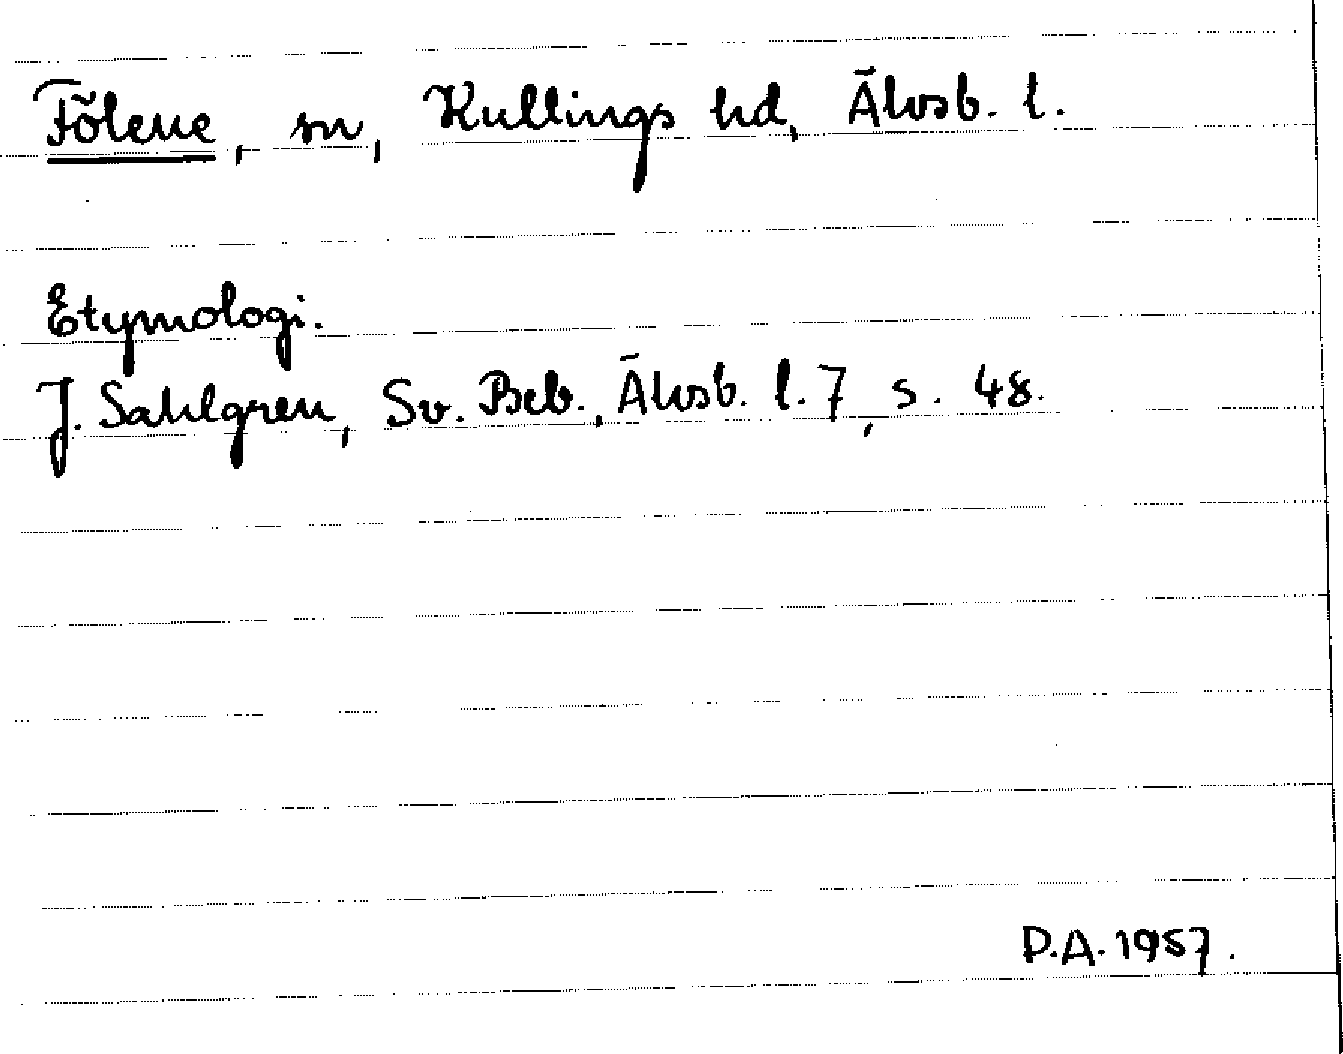 Fölene, sn, Kullings hd, Älvsb. l.
Etymologi.
J. Sahlgren, Sv. Beb., Älvsb. l. 7, s. 48.
P.A. 1957.